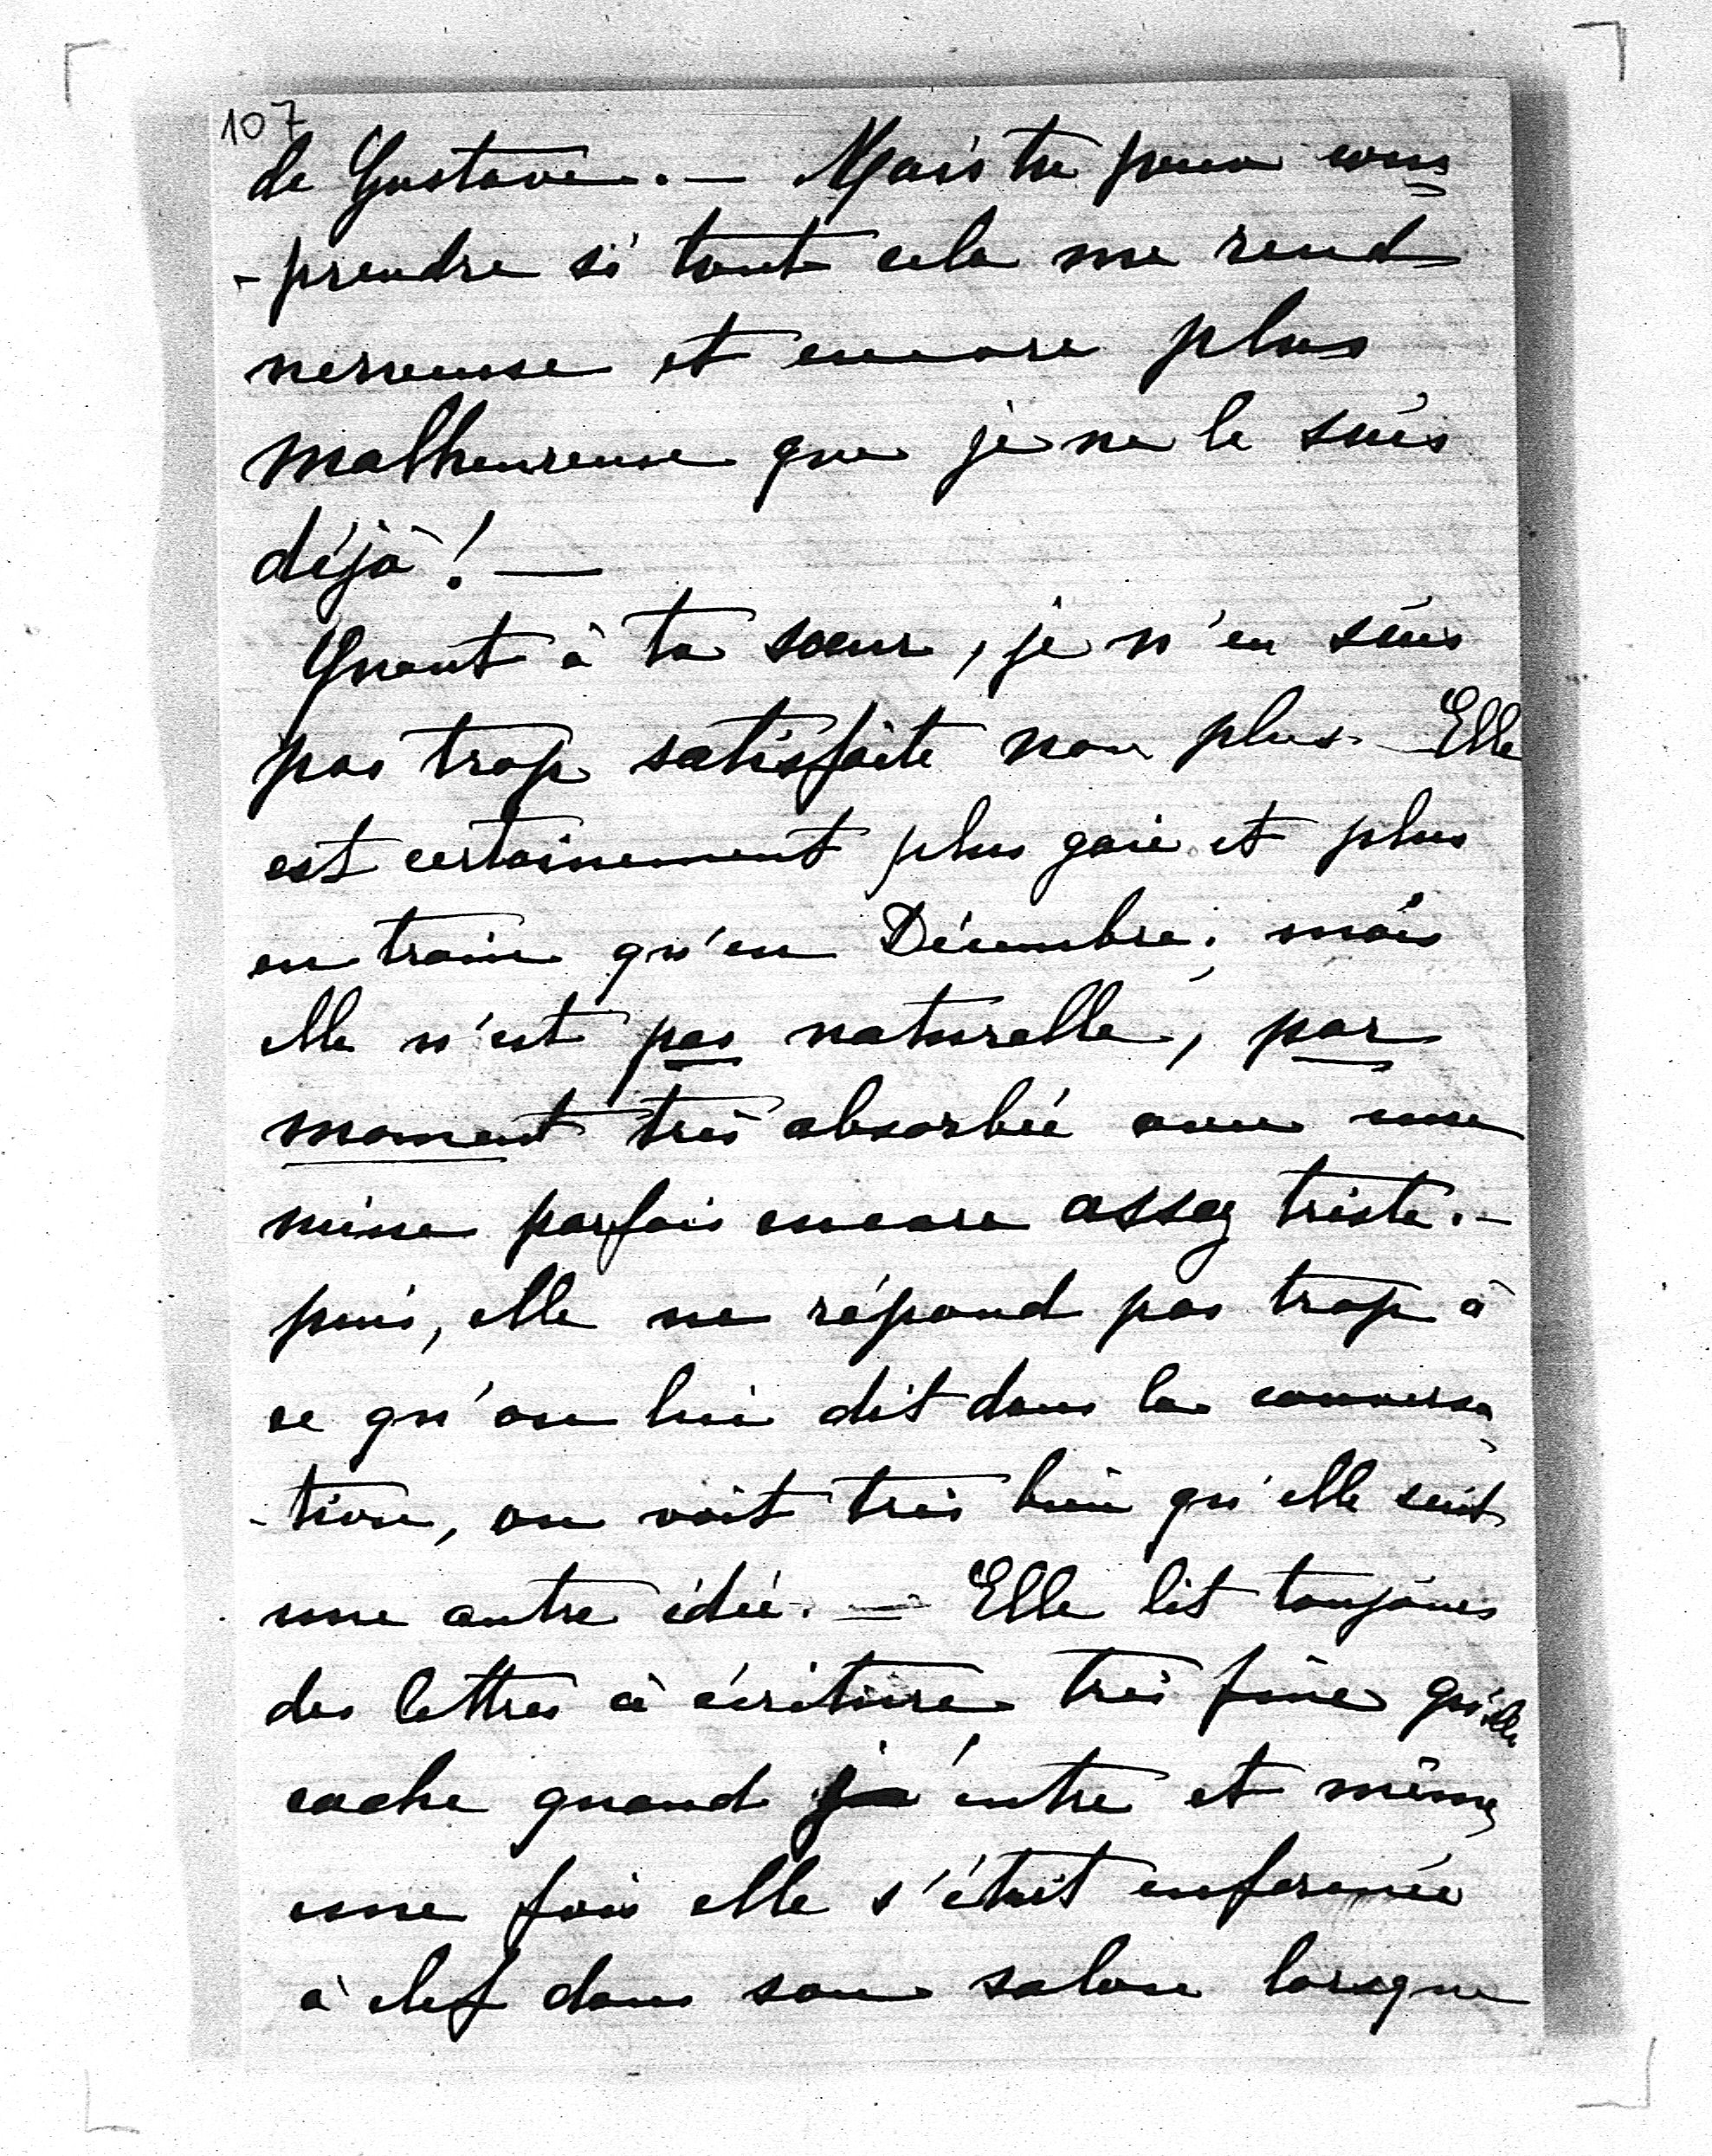 107
de Gustave. — Mais tu peux com
-prendre si tout cela me rend
nerveuse et encore plus
malheureuse que je ne le suis
déjà ! —
Quant à ta sœur, je n'en suis
pas trop satisfaite non plus. Elle
est certainement plus gaie et plus
en train qu'en Décembre ; mais
elle n'est pas naturelle, par
moment très absorbée avec une
mine parfois encore assez triste. —
puis, elle ne répond pas trop à
ce qu'on lui dit dans la conversa
-tion, on voit très bien qu'elle suit
une autre idée. — Elle lit toujours
des lettres à écriture très fine qu'elle
cache quand j'entre et même
une fois elle s'était enfermée
à clef dans son salon lorsque